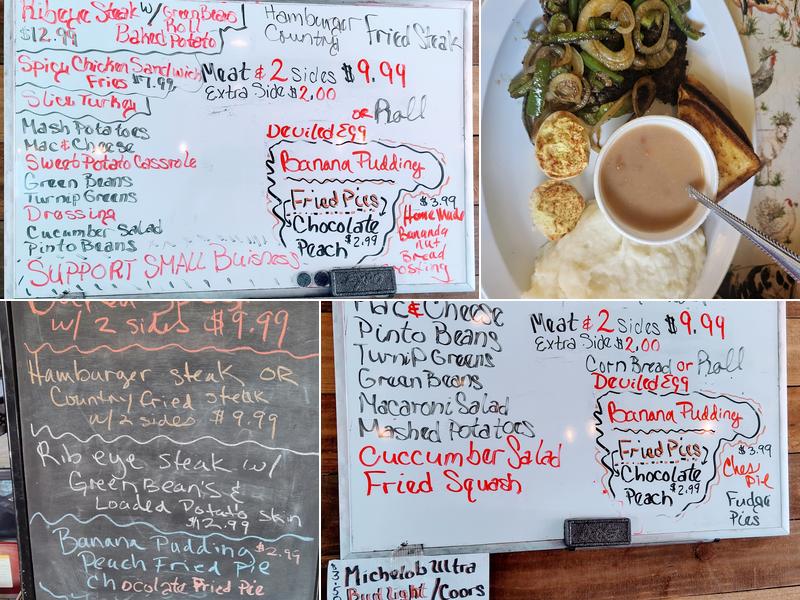 Ribeye Steak w/ Green Beans
Roll
$12.99 Baked Potato
Spicy Chicken Sandwich
Fries $7.99
Slice Turkey
Mash Potatoes
Mac & Cheese
Sweet Potato Casserole
Green Beans
Turnip Greens
Dressing
Cucumber Salad
Pinto Beans
SUPPORT SMALL Buisness
Hamburger
Country Fried Steak
Meat & 2 Sides $9.99
Extra Side $2.00
or Roll
Deviled Egg
Banana Pudding
Fried Pies
Chocolate
Peach $2.99
$3.99
Home Made
Banana
nut
Bread
w/ 2 sides $9.99
Hamburger steak OR
Country Fried steak
w/ 2 sides $9.99
Rib eye steak w/
Green Bean's &
Loaded Potato skin
$12.99
Banana Pudding $2.99
Peach Fried Pie
Chocolate Fried Pie
Mac & Cheese
Pinto Beans
Turnip Greens
Green Beans
Macaroni Salad
Mashed Potatoes
Cuccumber Salad
Fried Squash
Meat & 2 Sides $9.99
Extra Side $2.00
Corn Bread or Roll
Deviled Egg
Banana Pudding
Fried Pies
Chocolate
Peach $2.99
$3.99
Ches
Pie
Fudge
Pies
Michelob Ultra
Bud light / Coors